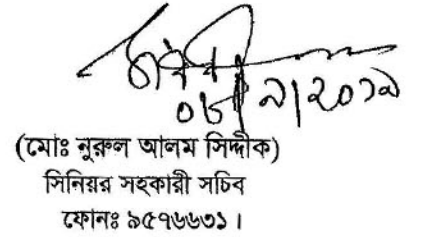 ০৮/৯/২০১৯
(মোঃ নুরুল আলম সিদ্দীক)
সিনিয়র সহকারী সচিব
ফোনঃ ৯৫৭৬৬৩১।